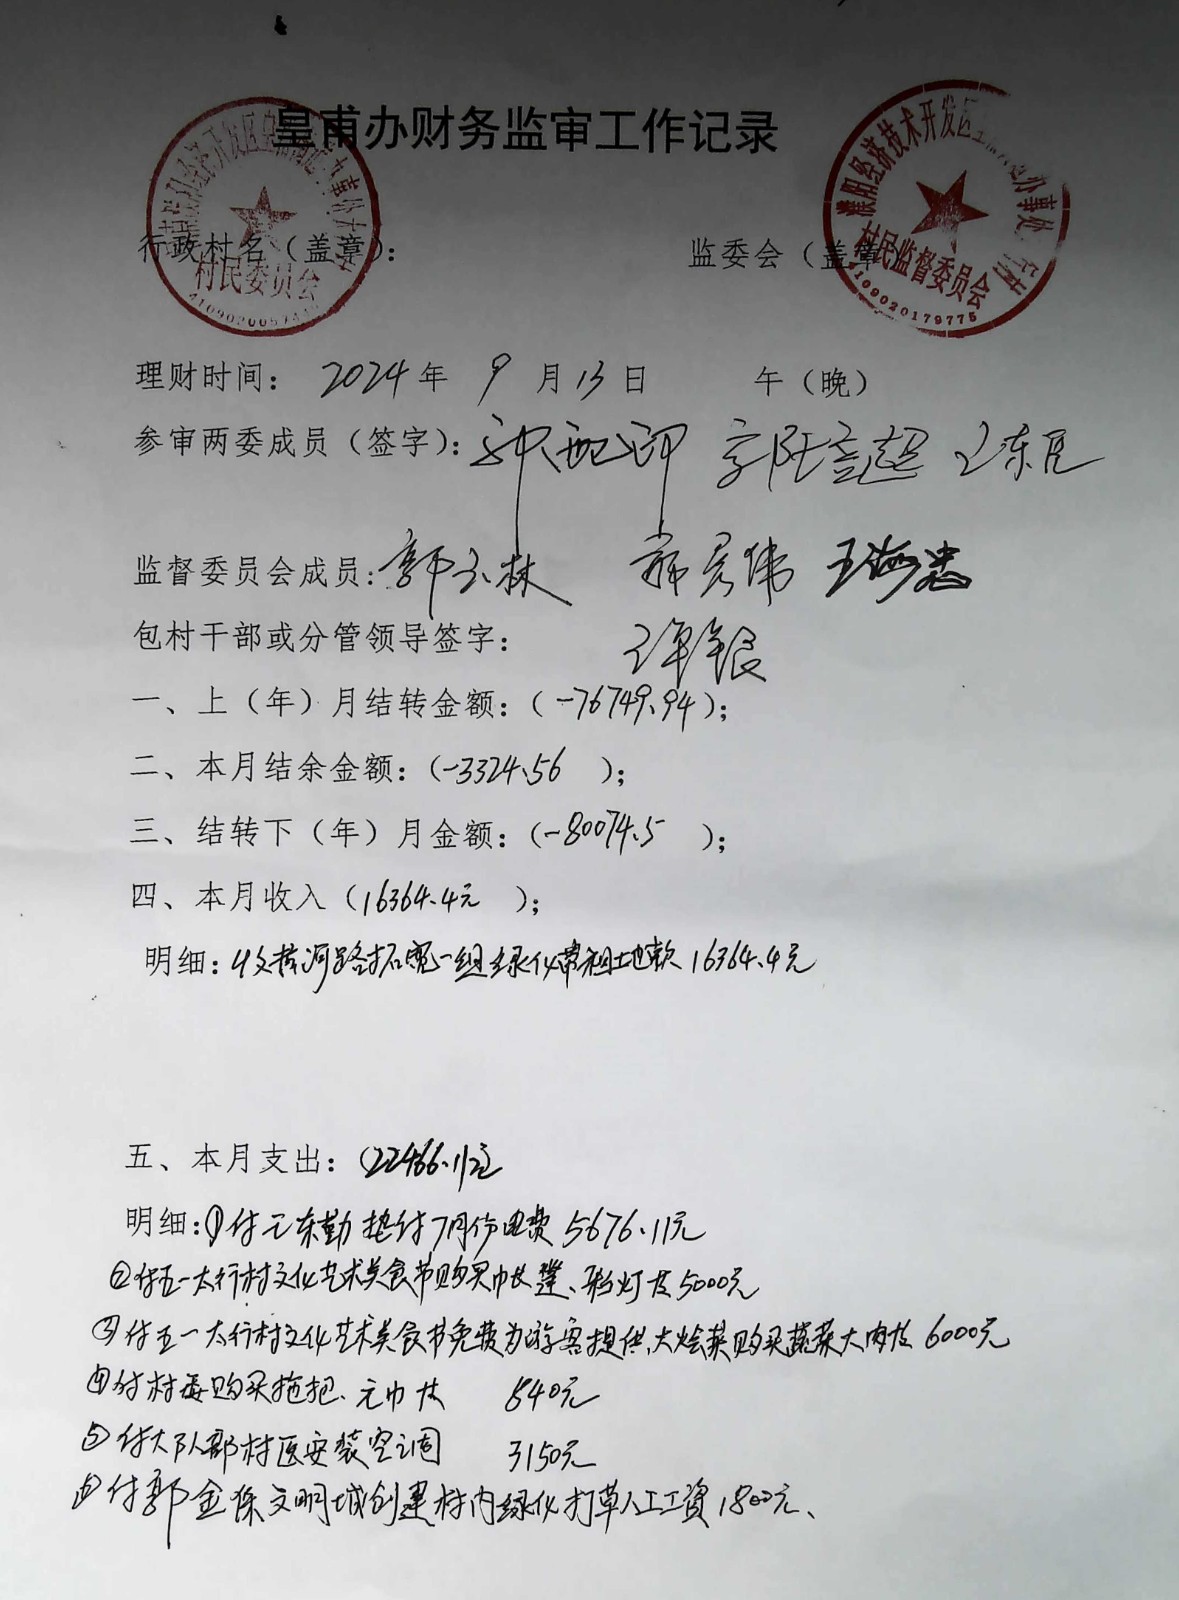 皇甫办财务监审工作记录
行政村名（盖章）：
监委会（盖章
村民委员会
濮阳经济技术开发区
办事处
村民监督委员会
4109020179775
理财时间： 2024年 9 月13日 午（晚）
参审两委成员（签字）：
监督委员会成员：郭玉林 王海忠
包村干部或分管领导签字：
一、上（年）月结转金额：（-76749.94）；
二、本月结余金额：（-3324.56 ）；
三、结转下（年）月金额：（-80074.5 ）；
四、本月收入（16364.4元 ）；
明细：收 河路拓宽一组绿化带租地款16364.4元
五、本月支出：（22466.11元
明细：①付王东勤垫付7月份电费5676.11元
②付五一太行村文化艺术美食节购买 、彩灯 5000元
③付五一太行村文化艺术美食节免费为游客提供大烩菜购买蔬菜大肉 6000元
④付村委购买拖把、 巾 840元
⑤付大队部村医安装空调 3150元
⑥付郭金保文明城创建村内绿化打草人工工资1800元、